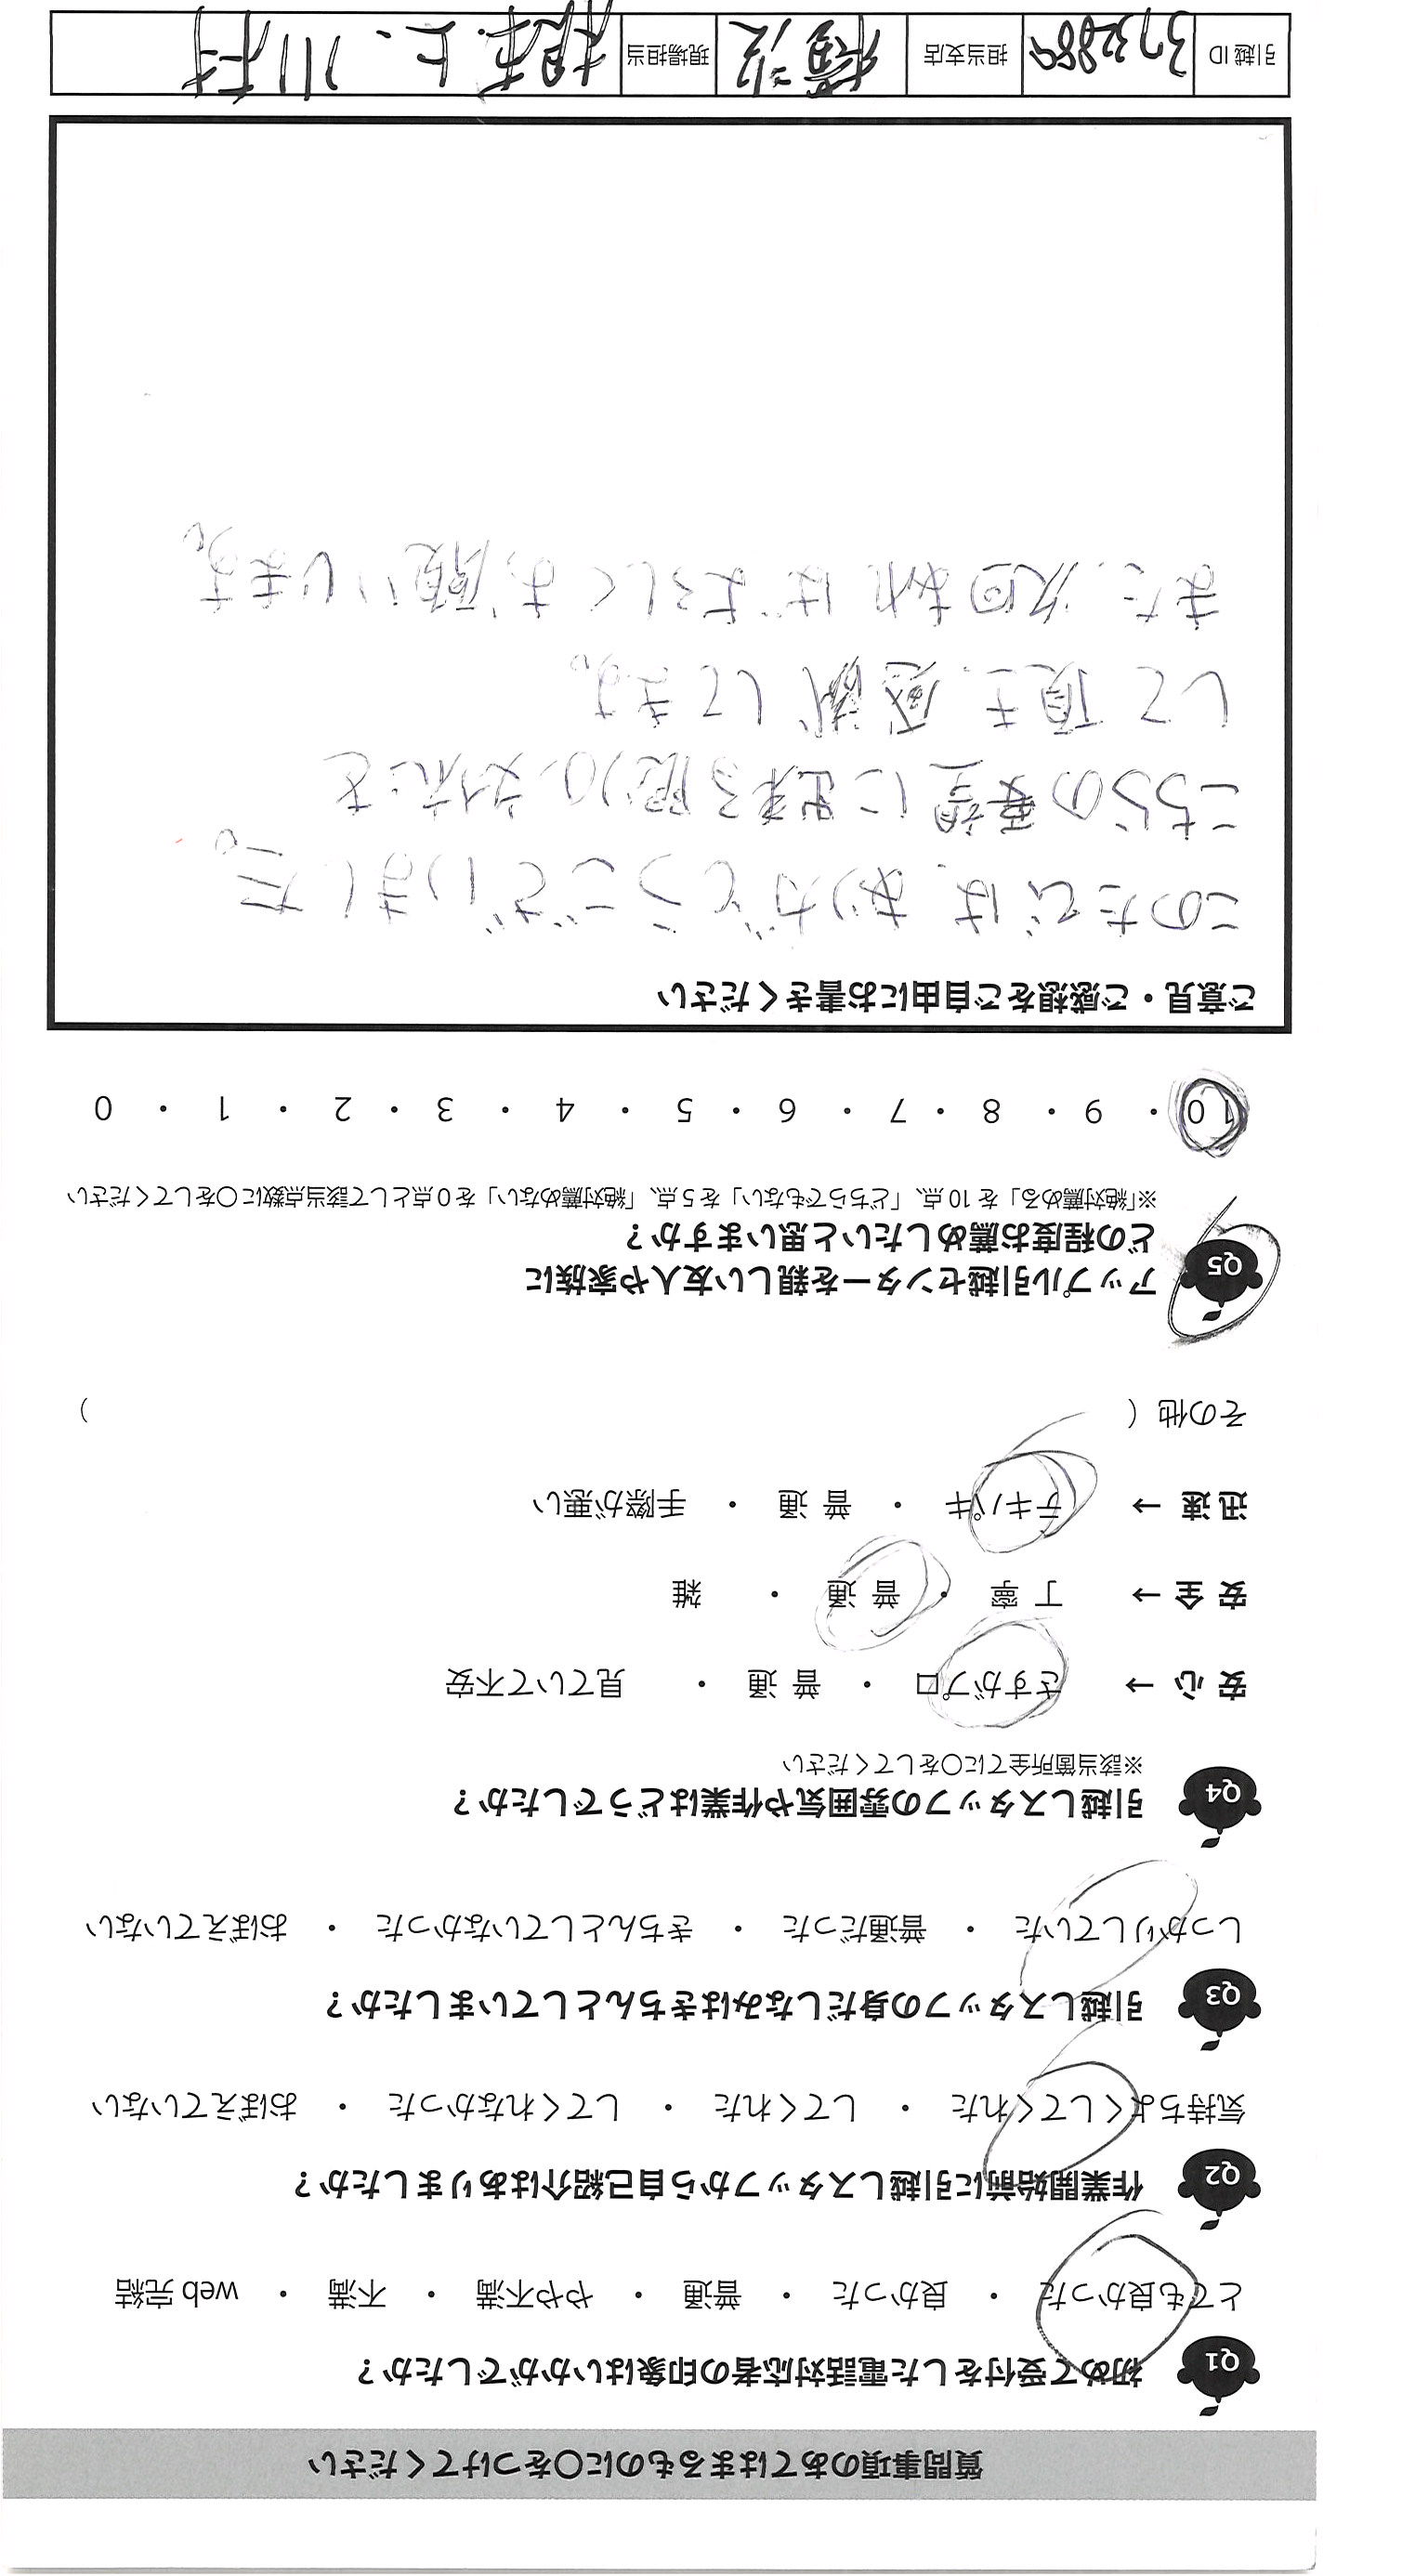 質問事項のあてはまるものに〇をつけてください
Q1 初めて受付をした電話対応者の印象はいかがでしたか？
とても良かった ・ 良かった ・ 普通 ・ やや不満 ・ 不満 ・ web 完結
Q2 作業開始前に引越しスタッフから自己紹介はありましたか？
気持ちよくしてくれた ・ してくれた ・ してくれなかった ・ おぼえていない
Q3 引越しスタッフの身だしなみはきちんとしていましたか？
しっかりしていた ・ 普通だった ・ きちんとしていなかった ・ おぼえていない
Q4 引越しスタッフの雰囲気や作業はどうでしたか？
※該当箇所全てに〇をしてください
安 心 → さすがプロ ・ 普 通 ・ 見ていて不安
安 全 → 丁 寧 ・ 普 通 ・ 雑
迅 速 → テキパキ ・ 普 通 ・ 手際が悪い
その他（ ）
Q5 アップル引越センターを親しい友人や家族に
どの程度お薦めしたいと思いますか？
※「絶対薦める」を 10 点、「どちらでもない」を 5 点、「絶対薦めない」を 0 点として該当点数に〇をしてください
10 ・ 9 ・ 8 ・ 7 ・ 6 ・ 5 ・ 4 ・ 3 ・ 2 ・ 1 ・ 0
ご意見・ご感想をご自由にお書きください
このたびは、ありがとうございました。
こちらの要望に出来る限りの対応を
して頂き、感謝してます。
また、次回あればよろしくお願いします。
引越 ID 担当支店 横浜 現場担当 根本上、川村